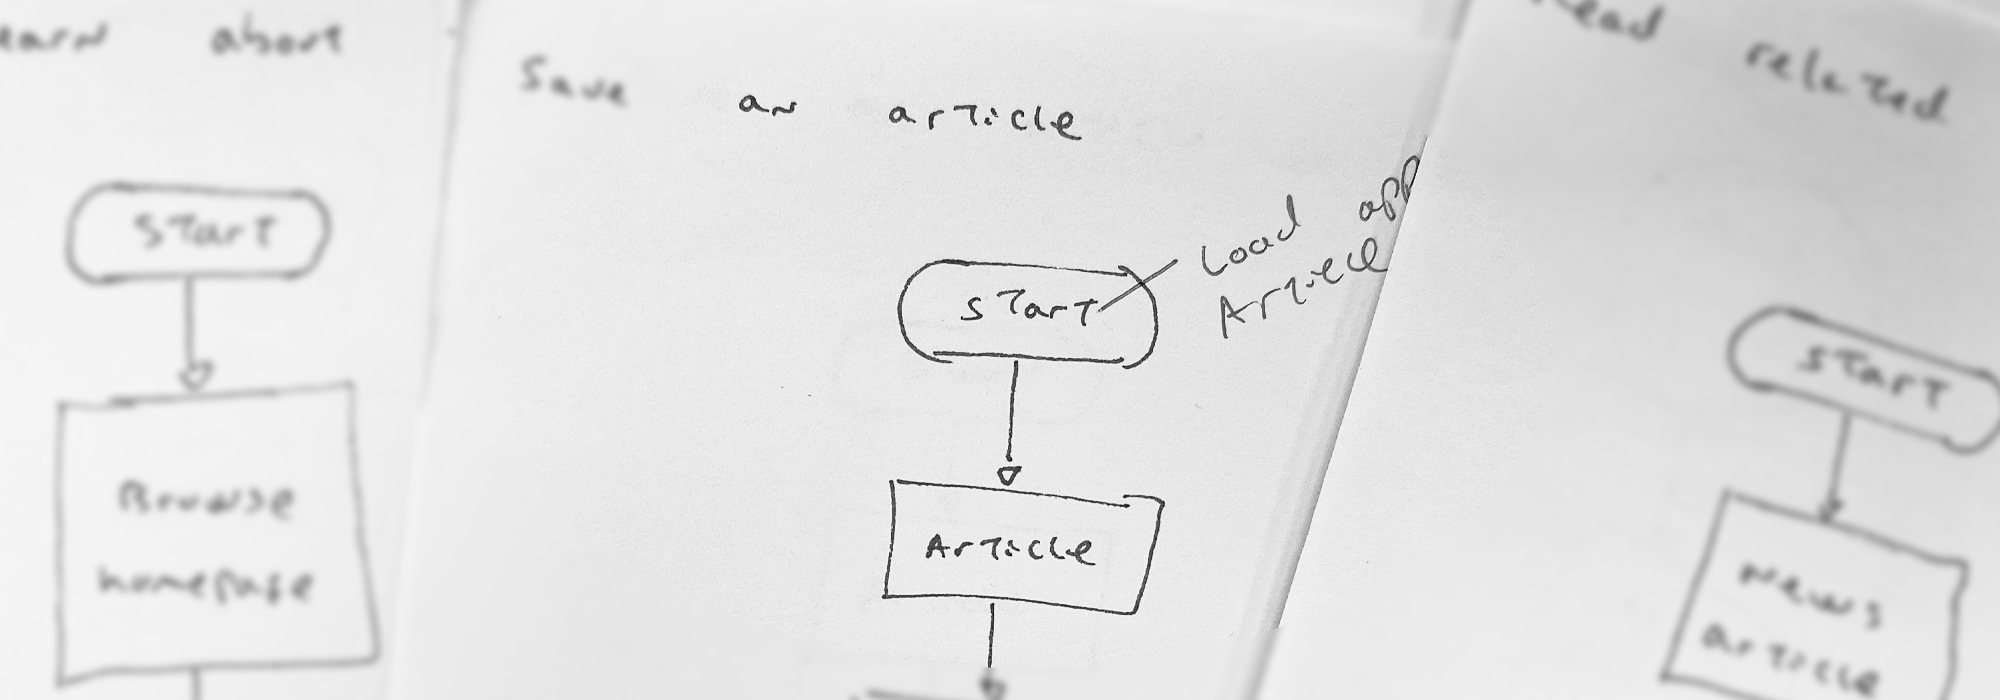 about
start
Browse
homepage
Save an article
Load app
Article
start
Article
related
start
News
article